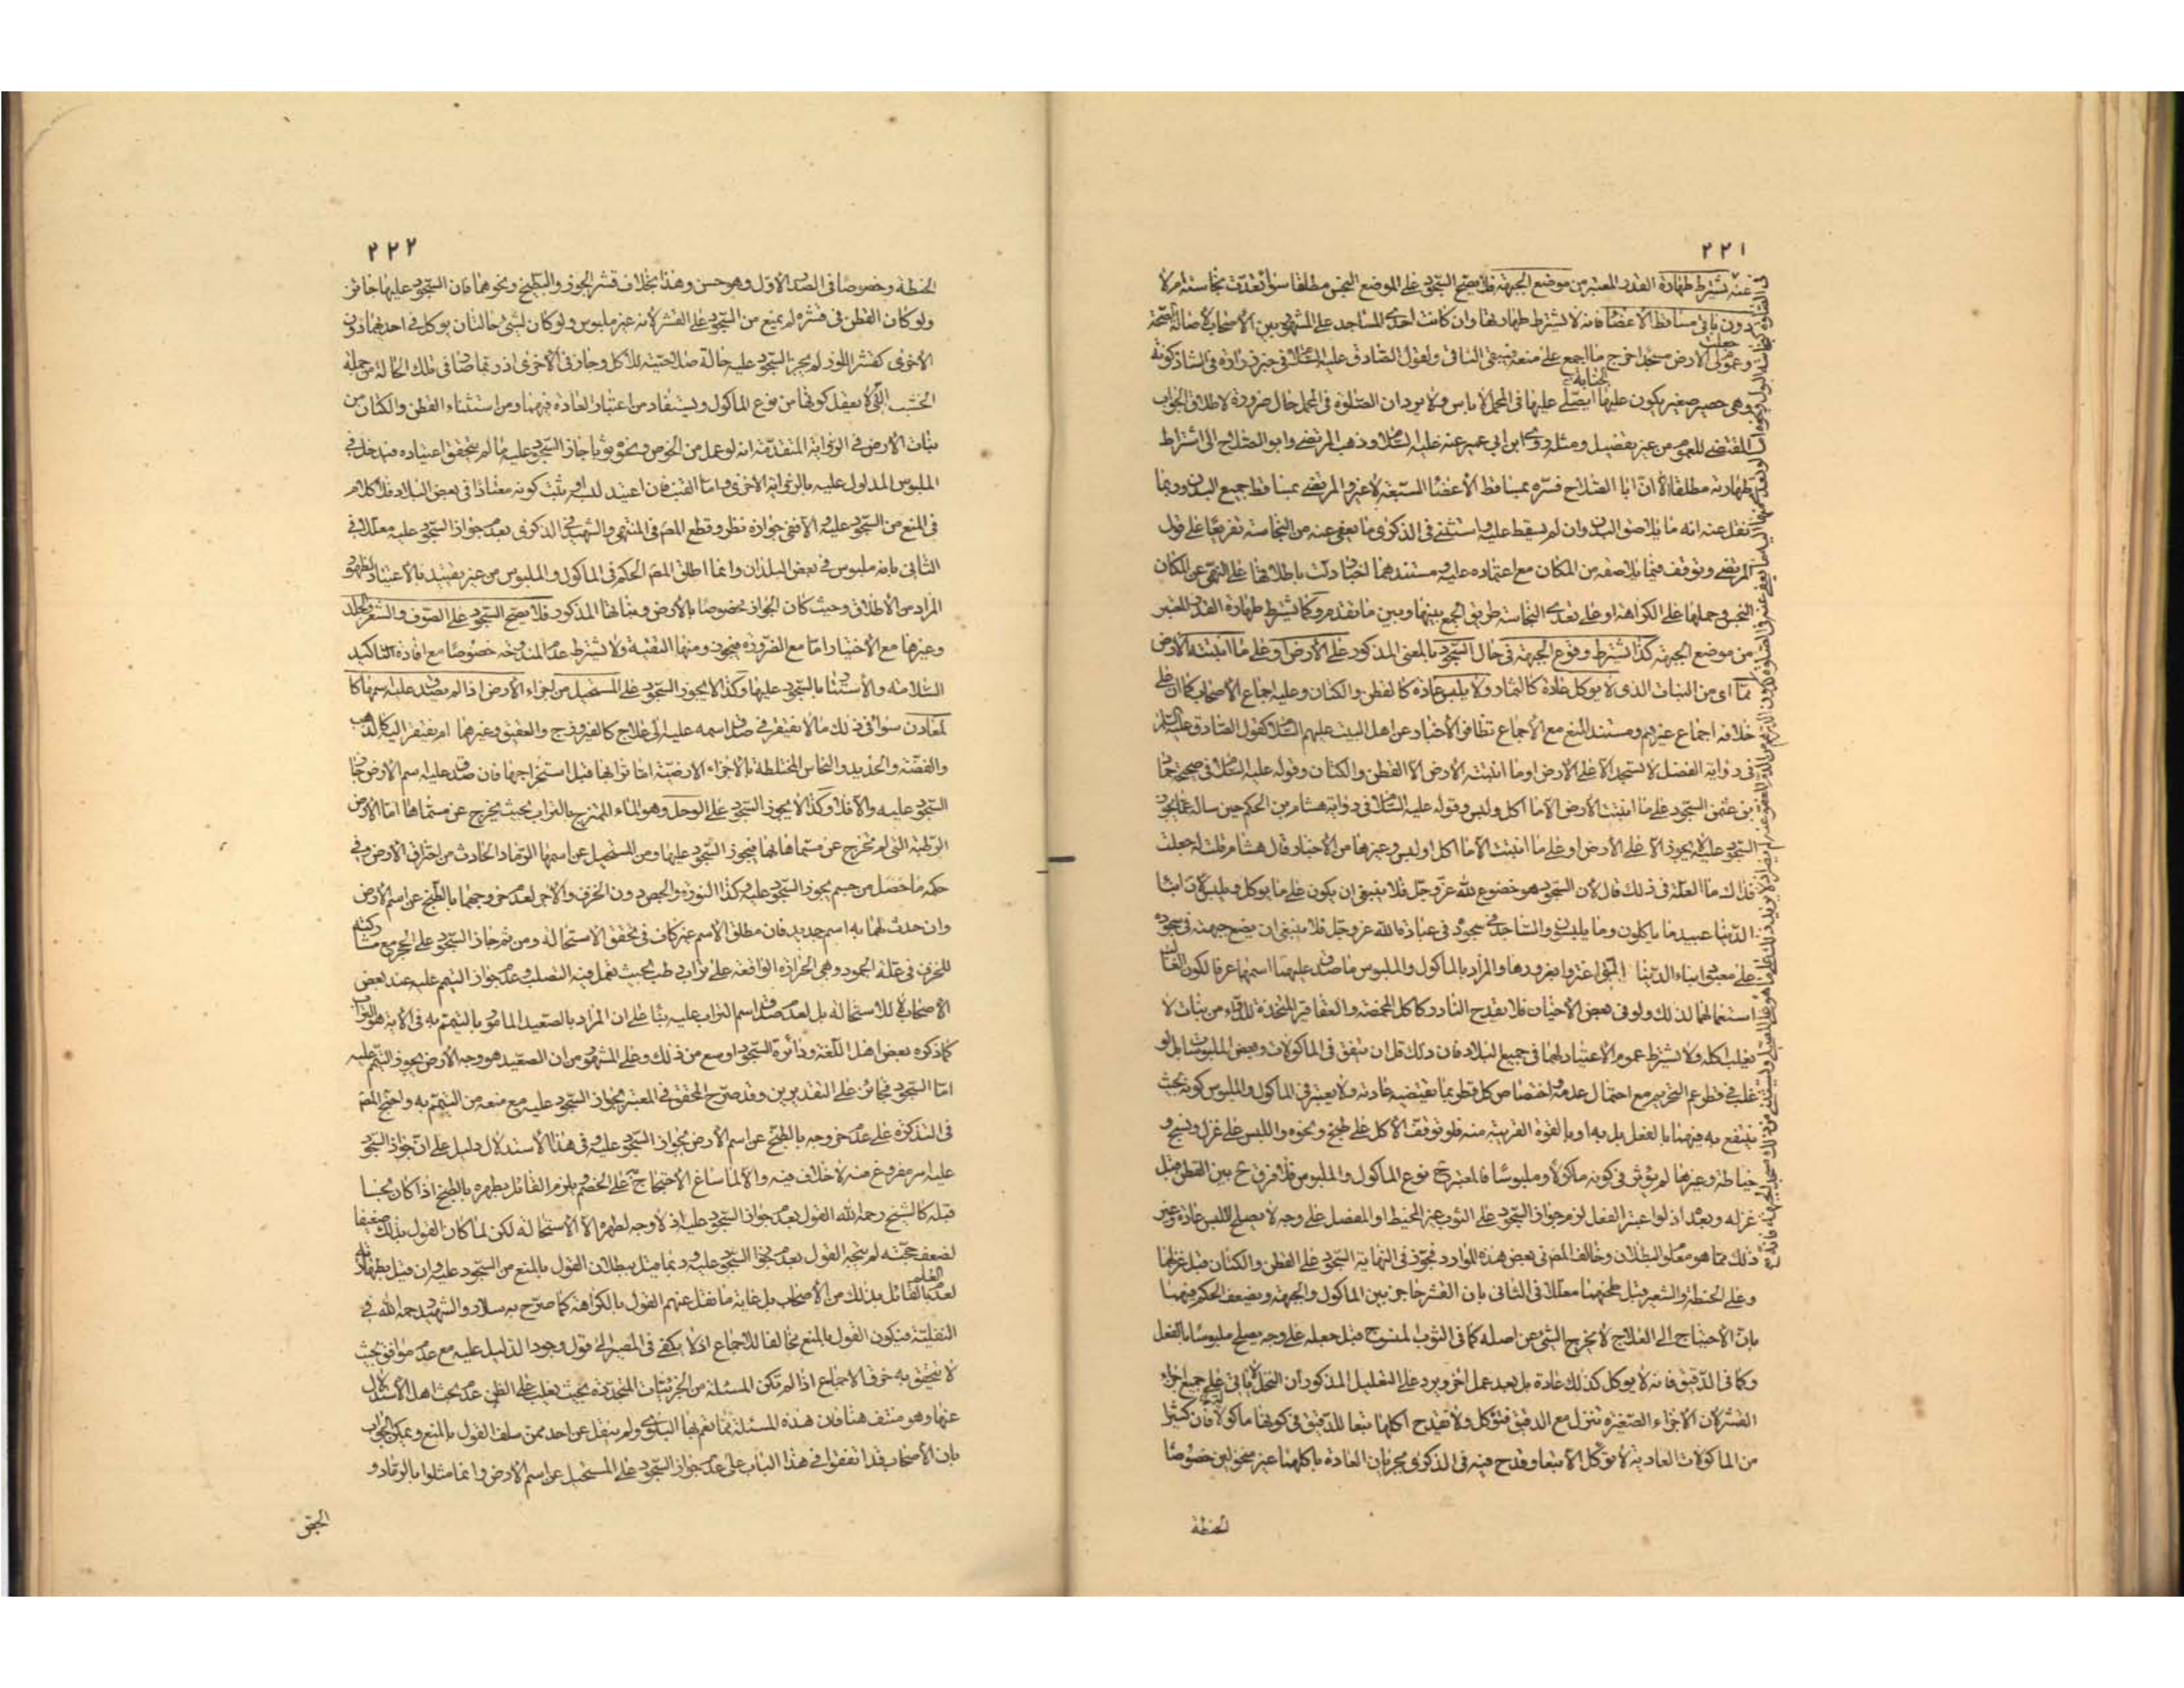 ٢٢١
عنه تشترط طهارة القدر المعتبر من موضع الجبهة فلا يصح السجود على الموضع النجس مطلقا سواء تعدت نجاسته ام لا
دون باقي مساقط الأعضاء فانه لا يشترط طهارتها وان كانت احدى المساجد على المشهور بين الأصحاب لأصالة الصحة
وعموم جعلت لي الارض مسجدا خرج ما اجمع على منعه فيبقى الباقي ولقول الصادق عليه السلام في خبر زرارة في الشاذكونة
وهي حصير صغير يكون عليها الجنابة ايصلى عليها في المحمل لا باس ولا يرد ان الصلوة في المحمل حال ضرورة لاطلاق الجواب
المقتضي للعموم من غير تفصيل ومثله روى ابن ابي عمير عنه عليه السلام وذهب المرتضى وابو الصلاح الى اشتراط
طهارته مطلقا الا ان ابا الصلاح فسره بمساقط الأعضاء السبعة لا غير والمرتضى بمساقط جميع البدن وربما
نقل عنه انه ما يلاصق البدن وان لم يسقط عليه واستثنى في الذكرى ما يعفى عنه من النجاسة تفريعا على قول
المرتضى وتوقف فيما يلاصقه من المكان مع اعتماده عليه ومستندهما اخبار دلت باطلاقها على النهي عن المكان
النجس وحملها على الكراهة او على تعدي النجاسة طريق الجمع بينها وبين ما تقدم وكما يشترط طهارة القدر المعتبر
من موضع الجبهة كذا يشترط وقوع الجبهة في حال السجود بالمعنى المذكور على الأرض او على ما انبتته الأرض
مما اى من النبات الذي لا يوكل عادة كالثمار ولا يلبس عادة كالقطن والكتان وعليه اجماع الأصحاب كما ان على
خلافه اجماع غيرهم ومستند المنع مع الاجماع تظافر الأخبار عن اهل البيت عليهم السلام كقول الصادق عليه السلام
في رواية الفضل لا تسجد الا على الارض او ما انبتته الأرض الا القطن والكتان وقوله عليه السلام في صحيحة حماد
بن عثمن السجود على ما انبتت الأرض الا ما اكل ولبس وقوله عليه السلام في رواية هشام بن الحكم حين ساله عما يجوز
السجود عليه لا يجوز الا على الأرض او على ما انبتت الا ما اكل او لبس وغيرها من الأخبار قال هشام قلت له جعلت
فداك ما العلة في ذلك قال لأن السجود هو خضوع لله عز وجل فلا ينبغي ان يكون على ما يوكل ويلبس لأن ابناء
الدنيا عبيد ما ياكلون وما يلبسون والساجد في سجوده في عبادة الله عز وجل فلا ينبغي ان يضع جبهته في سجوده
على معبود ابناء الدنيا الذين اغتروا بغرورها والمراد بالماكول والملبوس ما صدق عليهما اسمهما عرفا لكون الغالب
استعمالهما لذلك ولو في بعض الأحيان فلا يقدح النادر كاكل المخمصة والعقاقير المتخذة للدواء من نبات لا
يغلب اكله ولا يشترط عموم الاعتياد لهما في جميع البلاد فان ذلك قل ان يتفق في الماكولات وبعض الملبوسات بل لو
غلب في قطر عم التحريم مع احتمال عدمه واختصاص كل قطر بما تقتضيه عادته ولا يعتبر في الماكول والملبوس كونه بحيث
ينتفع به فيهما بالفعل بل به او بالقوة القريبة منه فلو توقف الأكل على طبخ ونحوه واللبس على غزل ونسج و
خياطة وغيرها لم يؤثر في كونه ماكولا وملبوسا فالمعتبر ح نوع الماكول والملبوس فلا فرق ح بين القطن قبل
غزله وبعده اذ لو اعتبر الفعل لزم جواز السجود على الثوب غير المخيط او المفصل على وجه لا يصلح للبس عادة وغير
ذلك مما هو معلوم البطلان وخالف المص في بعض هذه الموارد فجوز في النهاية السجود على القطن والكتان قبل غزلهما
وعلى الحنطة والشعير قبل طحنهما معللا في الثاني بان القشر حاجز بين الماكول والجبهة ويضعف الحكم فيهما
بان الاحتياج الى العلاج لا يخرج الشئ عن اصله كما في الثوب المنسوج قبل جعله على وجه يصلح ملبوسا بالفعل
وكما في الدقيق فانه لا يوكل كذلك عادة بل بعد عمل اخر ويرد على التعليل المذكور ان النخل لا ياتي على جميع اجزاء
القشر لأن الاجزاء الصغيرة تنزل مع الدقيق فتؤكل ولا يقدح اكلها تبعا للدقيق في كونها ماكولة فان كثيرا
من الماكولات العادية لا توكل الا تبعا وقدح فيه في الذكرى بجريان العادة باكلهما غير منخولين خصوصا
الحنطة
٢٢٢
الحنطة وخصوصا في الصدر الأول وهو حسن وهذا بخلاف قشر الجوز والبطيخ ونحوهما فان السجود عليها جائز
ولو كان القطن في قشره لم يمنع من السجود على القشر لأنه غير ملبوس ولو كان لشئ حالتان يوكل في احدهما دون
الأخرى كقشر اللوز لم يجز السجود عليه حالة صلاحيته للأكل وجاز في الأخرى اذ ربما صار في تلك الحالة من جملة
الخشب التي لا يعقل كونها من نوع الماكول ويستفاد من اعتبار العادة فيهما ومن استثناء القطن والكتان من
نبات الارض في الرواية المتقدمة انه لو عمل من الخوص ونحوه ثوبا جاز السجود عليه ما لم يتحقق اعتياده فيدخل في
الملبوس المدلول عليه بالرواية الاخرى واما القنب فان اعتيد لبسه او ثبت كونه معتادا في بعض البلاد فلا كلام
في المنع من السجود عليه والا ففي جوازه نظر وقطع المص في المنتهى والشهيد في الذكرى بعدم جواز السجود عليه معللا في
الثاني بانه ملبوس في بعض البلدان وانما اطلق المص الحكم في الماكول والملبوس من غير تقييد بالاعتياد لظهور
المراد من الأطلاق وحيث كان الجواز مخصوصا بالأرض ونباتها المذكور فلا يصح السجود على الصوف والشعر والجلد
وغيرها مع الأختيار اما مع الضرورة فيجوز ومنها التقية ولا يشترط عدم المندوحة خصوصا مع افادة التاكيد
السلامة والأستتار بالسجود عليها وكذا لا يجوز السجود على المستحيل من اجزاء الأرض اذا لم يصدق عليه اسمها كا
لمعادن سواء في ذلك ما لا يفتقر في صدق اسمه عليه الى علاج كالفيروزج والعقيق وغيرهما ام يفتقر اليه كالذهب
والفضة والحديد والنحاس المختلطة بالاجزاء الارضية اما ترابها قبل استخراجها فان صدق عليه اسم الارض جاز
السجود عليه والا فلا وكذا لا يجوز السجود على الوحل وهو الماء الممتزج بالتراب بحيث يخرج عن مسماها اما الارض
الرطبة التي لم تخرج عن مسماها بها فيجوز السجود عليها ومن المستحيل عن اسمها الرماد الحادث من احتراق الارض وفي
حكمه ما حصل من جسم يجوز السجود عليه وكذا النورة والجص دون الخزف والآجر لعدم خروجهما بالطبخ عن اسم الأرض
وان حدث لهما به اسم جديد فان مطلق الاسم غير كاف في تحقق الاستحالة ومن ثم جاز السجود على الحجر مع مشاركته
للخزف في علة الجمود وهي الحرارة الواقعة على تراب رطب بحيث تعمل فيه التصلب وعدم جواز التيمم عليه عند بعض
الأصحاب لا للاستحالة بل لعدم صدق اسم التراب عليه بناء على ان المراد بالصعيد المامور بالتيمم به في الآية هو التراب
كما ذكره بعض اهل اللغة ودائرة السجود اوسع من ذلك وعلى المشهور من ان الصعيد هو وجه الأرض يجوز التيمم عليه
اما السجود فجائز على التقديرين وقد صرح المحقق في المعتبر بجواز السجود عليه مع منعه من التيمم به واحتج المص
في التذكرة على عدم خروجه بالطبخ عن اسم الأرض بجواز السجود عليه وفي هذا الأستدلال دليل على ان جواز السجود
عليه امر مفروغ منه لا خلاف فيه والا لما ساغ الأحتجاج به على الخصم ويلزم القائل بطهره بالطبخ اذا كان نجسا
قبله كالشيخ رحمه الله القول بعدم جواز السجود عليه اذ لا وجه لطهره الا الاستحالة لكن لما كان القول بذلك ضعيفا
لضعف حجته لم يتجه القول بعدم جواز السجود عليه وربما قيل ببطلان القول بالمنع من السجود عليه وان قيل بطهارته
لعدم العلم بالقائل بذلك من الأصحاب بل غاية ما نقل عنهم القول بالكراهة كما صرح به سلار والشهيد رحمه الله في
النفلية فيكون القول بالمنع مخالفا للاجماع اذ لا يكفي في المصير الى قول وجود الدليل عليه مع عدم موافق بحيث
لا يتحقق به خرق الاجماع اذا لم تكن المسئلة من الجزئيات المتجددة بحيث يغلب على الظن عدم بحث اهل الأستدلال
عنها وهو منتف هنا فان هذه المسئلة مما تعم بها البلوى ولم ينقل عن احد ممن سلف القول بالمنع ويمكن الجواب
بان الأصحاب قد اتفقوا في هذا الباب على عدم جواز السجود على المستحيل عن اسم الارض وانما مثلوا بالرماد و